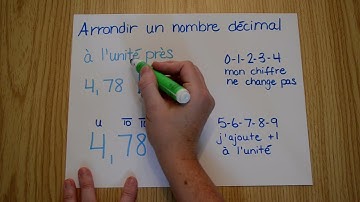 Arrondir un nombre décimal
à l'unité près
4,78
0-1-2-3-4
mon chiffre
ne change pas
u 10 10
4,78
5-6-7-8-9
j'ajoute +1
à l'unité